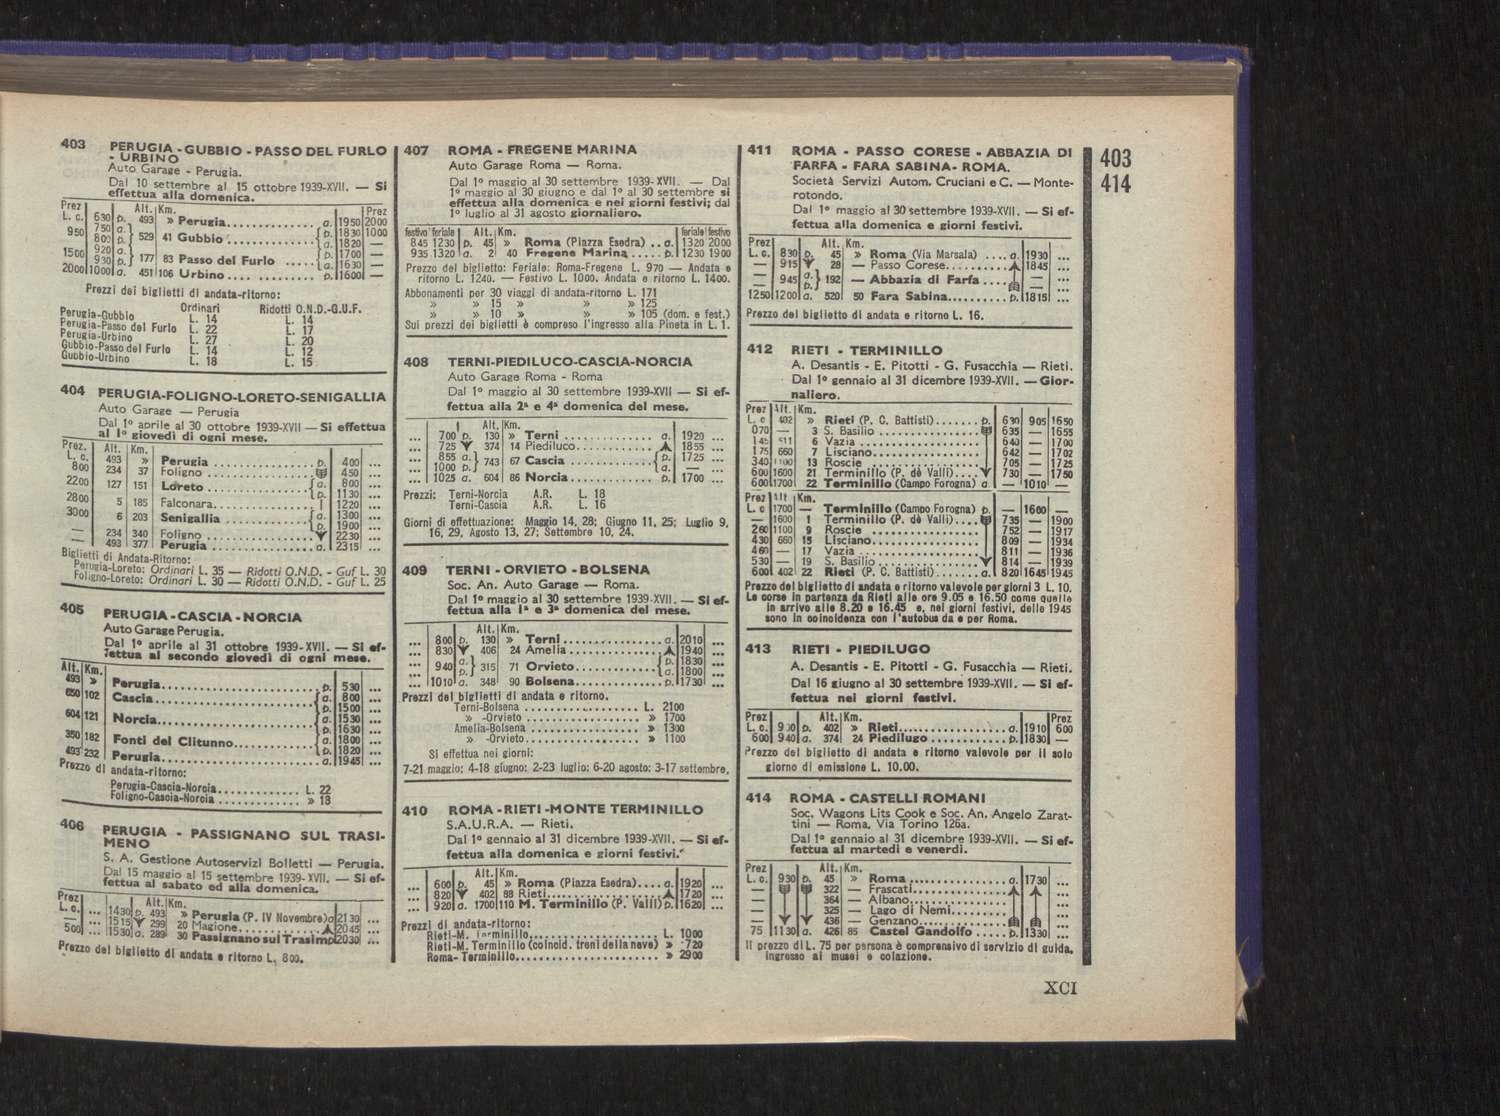 403 PERUGIA - GUBBIO - PASSO DEL FURLO
- URBINO
Auto Garage - Perugia.
Dal 10 settembre al 15 ottobre 1939-XVII. — Si
effettua alla domenica.
Prez Alt. Km. Prez
L. c. 630 p. 493 » Perugia a. 1950 2000
950 750 a. 800 p. 529 41 Gubbio p. 1830 1000 a. 1820 —
1500 920 a. 930 p. 177 83 Passo del Furlo p. 1700 — a. 1630 —
2000 1000 a. 451 106 Urbino p. 1600 —
Prezzi dei biglietti di andata-ritorno:
Ordinari Ridotti O.N.D.-G.U.F.
Perugia-Gubbio L. 14 L. 14
Perugia-Passo del Furlo L. 22 L. 17
Perugia-Urbino L. 27 L. 20
Gubbio-Passo del Furlo L. 14 L. 12
Gubbio-Urbino L. 18 L. 15
404 PERUGIA-FOLIGNO-LORETO-SENIGALLIA
Auto Garage — Perugia
Dal 1º aprile al 30 ottobre 1939-XVII — Si effettua
al 1º giovedì di ogni mese.
Prez. Alt. Km.
L. c. 493 » Perugia p. 400 ...
800 234 37 Foligno 450 ...
2200 127 151 Loreto a. 800 ... p. 1130 ...
2800 5 185 Falconara 1220 ...
3000 6 203 Senigallia a. 1300 ... p. 1900 ...
— 234 340 Foligno 2230 ...
— 493 377 Perugia a. 2315 ...
Biglietti di Andata-Ritorno:
Perugia-Loreto: Ordinari L. 35 — Ridotti O.N.D. - Guf L. 30
Foligno-Loreto: Ordinari L. 30 — Ridotti O.N.D. - Guf L. 25
405 PERUGIA - CASCIA - NORCIA
Auto Garage Perugia.
Dal 1º aprile al 31 ottobre 1939-XVII. — Si ef-
fettua al secondo giovedì di ogni mese.
Alt. Km.
493 » Perugia p. 530 ...
650 102 Cascia a. 800 ... p. 1500 ...
604 121 Norcia a. 1530 ... p. 1630 ...
350 182 Fonti del Clitunno a. 1800 ... p. 1820 ...
493 232 Perugia a. 1945 ...
Prezzo di andata-ritorno:
Perugia-Cascia-Norcia L. 22
Foligno-Cascia-Norcia » 18
406 PERUGIA - PASSIGNANO SUL TRASI-
MENO
S. A. Gestione Autoservizi Bolletti — Perugia.
Dal 15 maggio al 15 settembre 1939-XVII. — Si ef-
fettua al sabato ed alla domenica.
Prez Alt. Km.
L. c. ... 1430 p. 493 » Perugia (P. IV Novembre) a 2130 ...
— ... 1515 299 20 Magione 2045 ...
500 ... 1530 a. 289 30 Passignano sul Trasim p 2030 ...
Prezzo del biglietto di andata e ritorno L. 800.
407 ROMA - FREGENE MARINA
Auto Garage Roma — Roma.
Dal 1º maggio al 30 settembre 1939-XVII. — Dal
1º maggio al 30 giugno e dal 1º al 30 settembre si
effettua alla domenica e nei giorni festivi; dal
1º luglio al 31 agosto giornaliero.
festivo feriale Alt. Km. feriale festivo
845 1230 p. 45 » Roma (Piazza Esedra) .. a. 1320 2000
935 1320 a. 2 40 Fregene Marina p. 1230 1900
Prezzo del biglietto: Feriale: Roma-Fregene L. 970 — Andata e
ritorno L. 1240. — Festivo L. 1000. Andata e ritorno L. 1400.
Abbonamenti per 30 viaggi di andata-ritorno L. 171
» » 15 » » » 125
» » 10 » » » 105 (dom. e fest.)
Sui prezzi dei biglietti è compreso l'ingresso alla Pineta in L. 1.
408 TERNI-PIEDILUCO-CASCIA-NORCIA
Auto Garage Roma - Roma
Dal 1º maggio al 30 settembre 1939-XVII — Si ef-
fettua alla 2ª e 4ª domenica del mese.
Alt. Km.
... 700 p. 130 » Terni a. 1920 ...
... 725 374 14 Piediluco 1855 ...
... 855 a. 1000 p. 743 67 Cascia p. 1725 ... a. — ...
... 1025 a. 604 86 Norcia p. 1700 ...
Prezzi: Terni-Norcia A.R. L. 18
Terni-Cascia A.R. L. 16
Giorni di effettuazione: Maggio 14, 28; Giugno 11, 25; Luglio 9,
16, 29, Agosto 13, 27; Settembre 10, 24.
409 TERNI - ORVIETO - BOLSENA
Soc. An. Auto Garage — Roma.
Dal 1º maggio al 30 settembre 1939-XVII. — Si ef-
fettua alla 1ª e 3ª domenica del mese.
Alt. Km.
... 800 p. 130 » Terni a. 2010 ...
... 830 406 24 Amelia 1940 ...
... 940 a. p. 315 71 Orvieto p. 1830 ... a. 1800 ...
... 1010 a. 348 90 Bolsena p. 1730 ...
Prezzi dei biglietti di andata e ritorno.
Terni-Bolsena L. 2100
» -Orvieto » 1700
Amelia-Bolsena » 1300
» -Orvieto » 1100
Si effettua nei giorni:
7-21 maggio; 4-18 giugno; 2-23 luglio; 6-20 agosto; 3-17 settembre.
410 ROMA - RIETI - MONTE TERMINILLO
S.A.U.R.A. — Rieti.
Dal 1º gennaio al 31 dicembre 1939-XVII. — Si ef-
fettua alla domenica e giorni festivi.
Alt. Km.
... 600 p. 45 » Roma (Piazza Esedra) a. 1920 ...
... 820 402 88 Rieti 1720 ...
... 920 a. 1700 110 M. Terminillo (P. Valli) p. 1620 ...
Prezzi di andata-ritorno:
Rieti-M. Terminillo L. 1000
Rieti-M. Terminillo (coincid. treni della neve) » 720
Roma-Terminillo » 2900
411 ROMA - PASSO CORESE - ABBAZIA DI
FARFA - FARA SABINA - ROMA.
Società Servizi Autom. Cruciani e C. — Monte-
rotondo.
Dal 1º maggio al 30 settembre 1939-XVII. — Si ef-
fettua alla domenica e giorni festivi.
Prez Alt. Km.
L. c. 830 p. 45 » Roma (Via Marsala) a. 1930 ...
— 915 28 — Passo Corese 1845 ...
— 945 a. p. 192 — Abbazia di Farfa — ...
1250 1200 a. 520 50 Fara Sabina p. 1815 ...
Prezzo del biglietto di andata e ritorno L. 16.
412 RIETI - TERMINILLO
A. Desantis - E. Pitotti - G. Fusacchia — Rieti.
Dal 1º gennaio al 31 dicembre 1939-XVII. — Gior-
naliero.
Prez Alt. Km.
L. c 402 » Rieti (P. C. Battisti) p. 630 905 1650
070 — 3 S. Basilio 635 — 1655
145 511 6 Vazia 640 — 1700
175 660 7 Lisciano 642 — 1702
340 1100 13 Roscie 705 — 1725
600 1600 21 Terminillo (P. dè Valli) 730 — 1750
600 1700 22 Terminillo (Campo Forogna) a — 1010 —
Prez Alt Km.
L. c 1700 — Terminillo (Campo Forogna) p. — 1600 —
— 1600 1 Terminillo (P. dè Valli) 735 — 1900
260 1100 9 Roscie 752 — 1917
430 660 15 Lisciano 809 — 1934
460 — 17 Vazia 811 — 1936
530 — 19 S. Basilio 814 — 1939
600 402 22 Rieti (P. C. Battisti) a. 820 1645 1945
Prezzo del biglietto di andata e ritorno valevole per giorni 3 L. 10.
Le corse in partenza da Rieti alle ore 9.05 e 16.50 come quelle
in arrivo alle 8.20 e 16.45 e, nei giorni festivi, delle 1945
sono in coincidenza con l'autobus da e per Roma.
413 RIETI - PIEDILUGO
A. Desantis - E. Pitotti - G. Fusacchia — Rieti.
Dal 16 giugno al 30 settembre 1939-XVII. — Si ef-
fettua nei giorni festivi.
Prez Alt. Km. Prez
L. c. 900 p. 402 » Rieti a. 1910 600
600 940 a. 374 24 Piedilugo p. 1830 —
Prezzo del biglietto di andata e ritorno valevole per il solo
giorno di emissione L. 10.00.
414 ROMA - CASTELLI ROMANI
Soc. Wagons Lits Cook e Soc. An. Angelo Zarat-
tini — Roma, Via Torino 126a.
Dal 1º gennaio al 31 dicembre 1939-XVII. — Si ef-
fettua al martedì e venerdì.
Prez Alt. Km.
L. c. 930 p. 45 » Roma a. 1730 ...
— 322 — Frascati ...
— 364 — Albano ...
— 325 — Lago di Nemi ...
— 436 — Genzano ...
75 1130 a. 426 85 Castel Gandolfo p. 1330 ...
Il prezzo di L. 75 per persona è comprensivo di servizio di guida,
ingresso ai musei e colazione.
403
414
XCI